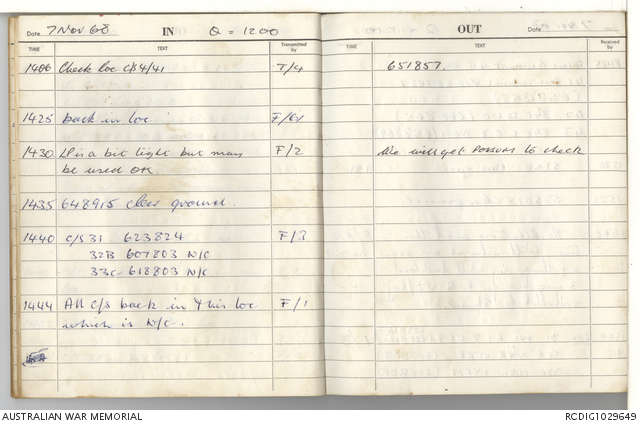 Date 7 Nov 68 IN Q = 1200
TIME TEXT Transmitted by
1406 Check loc c/s 4/41 T/4
1425 back in loc
1430 LP is a bit tight but may F/2
be used OK
1435 648915 clear ground.
1440 c/s 31 623824 F/3
32B 607803 N/C
33C 618803 N/C
1444 All c/s back in & this loc F/1
which is N/C.
Date OUT
TIME TEXT Received by
651857.
We will get Possums to check
AUSTRALIAN WAR MEMORIAL RCDIG1029649